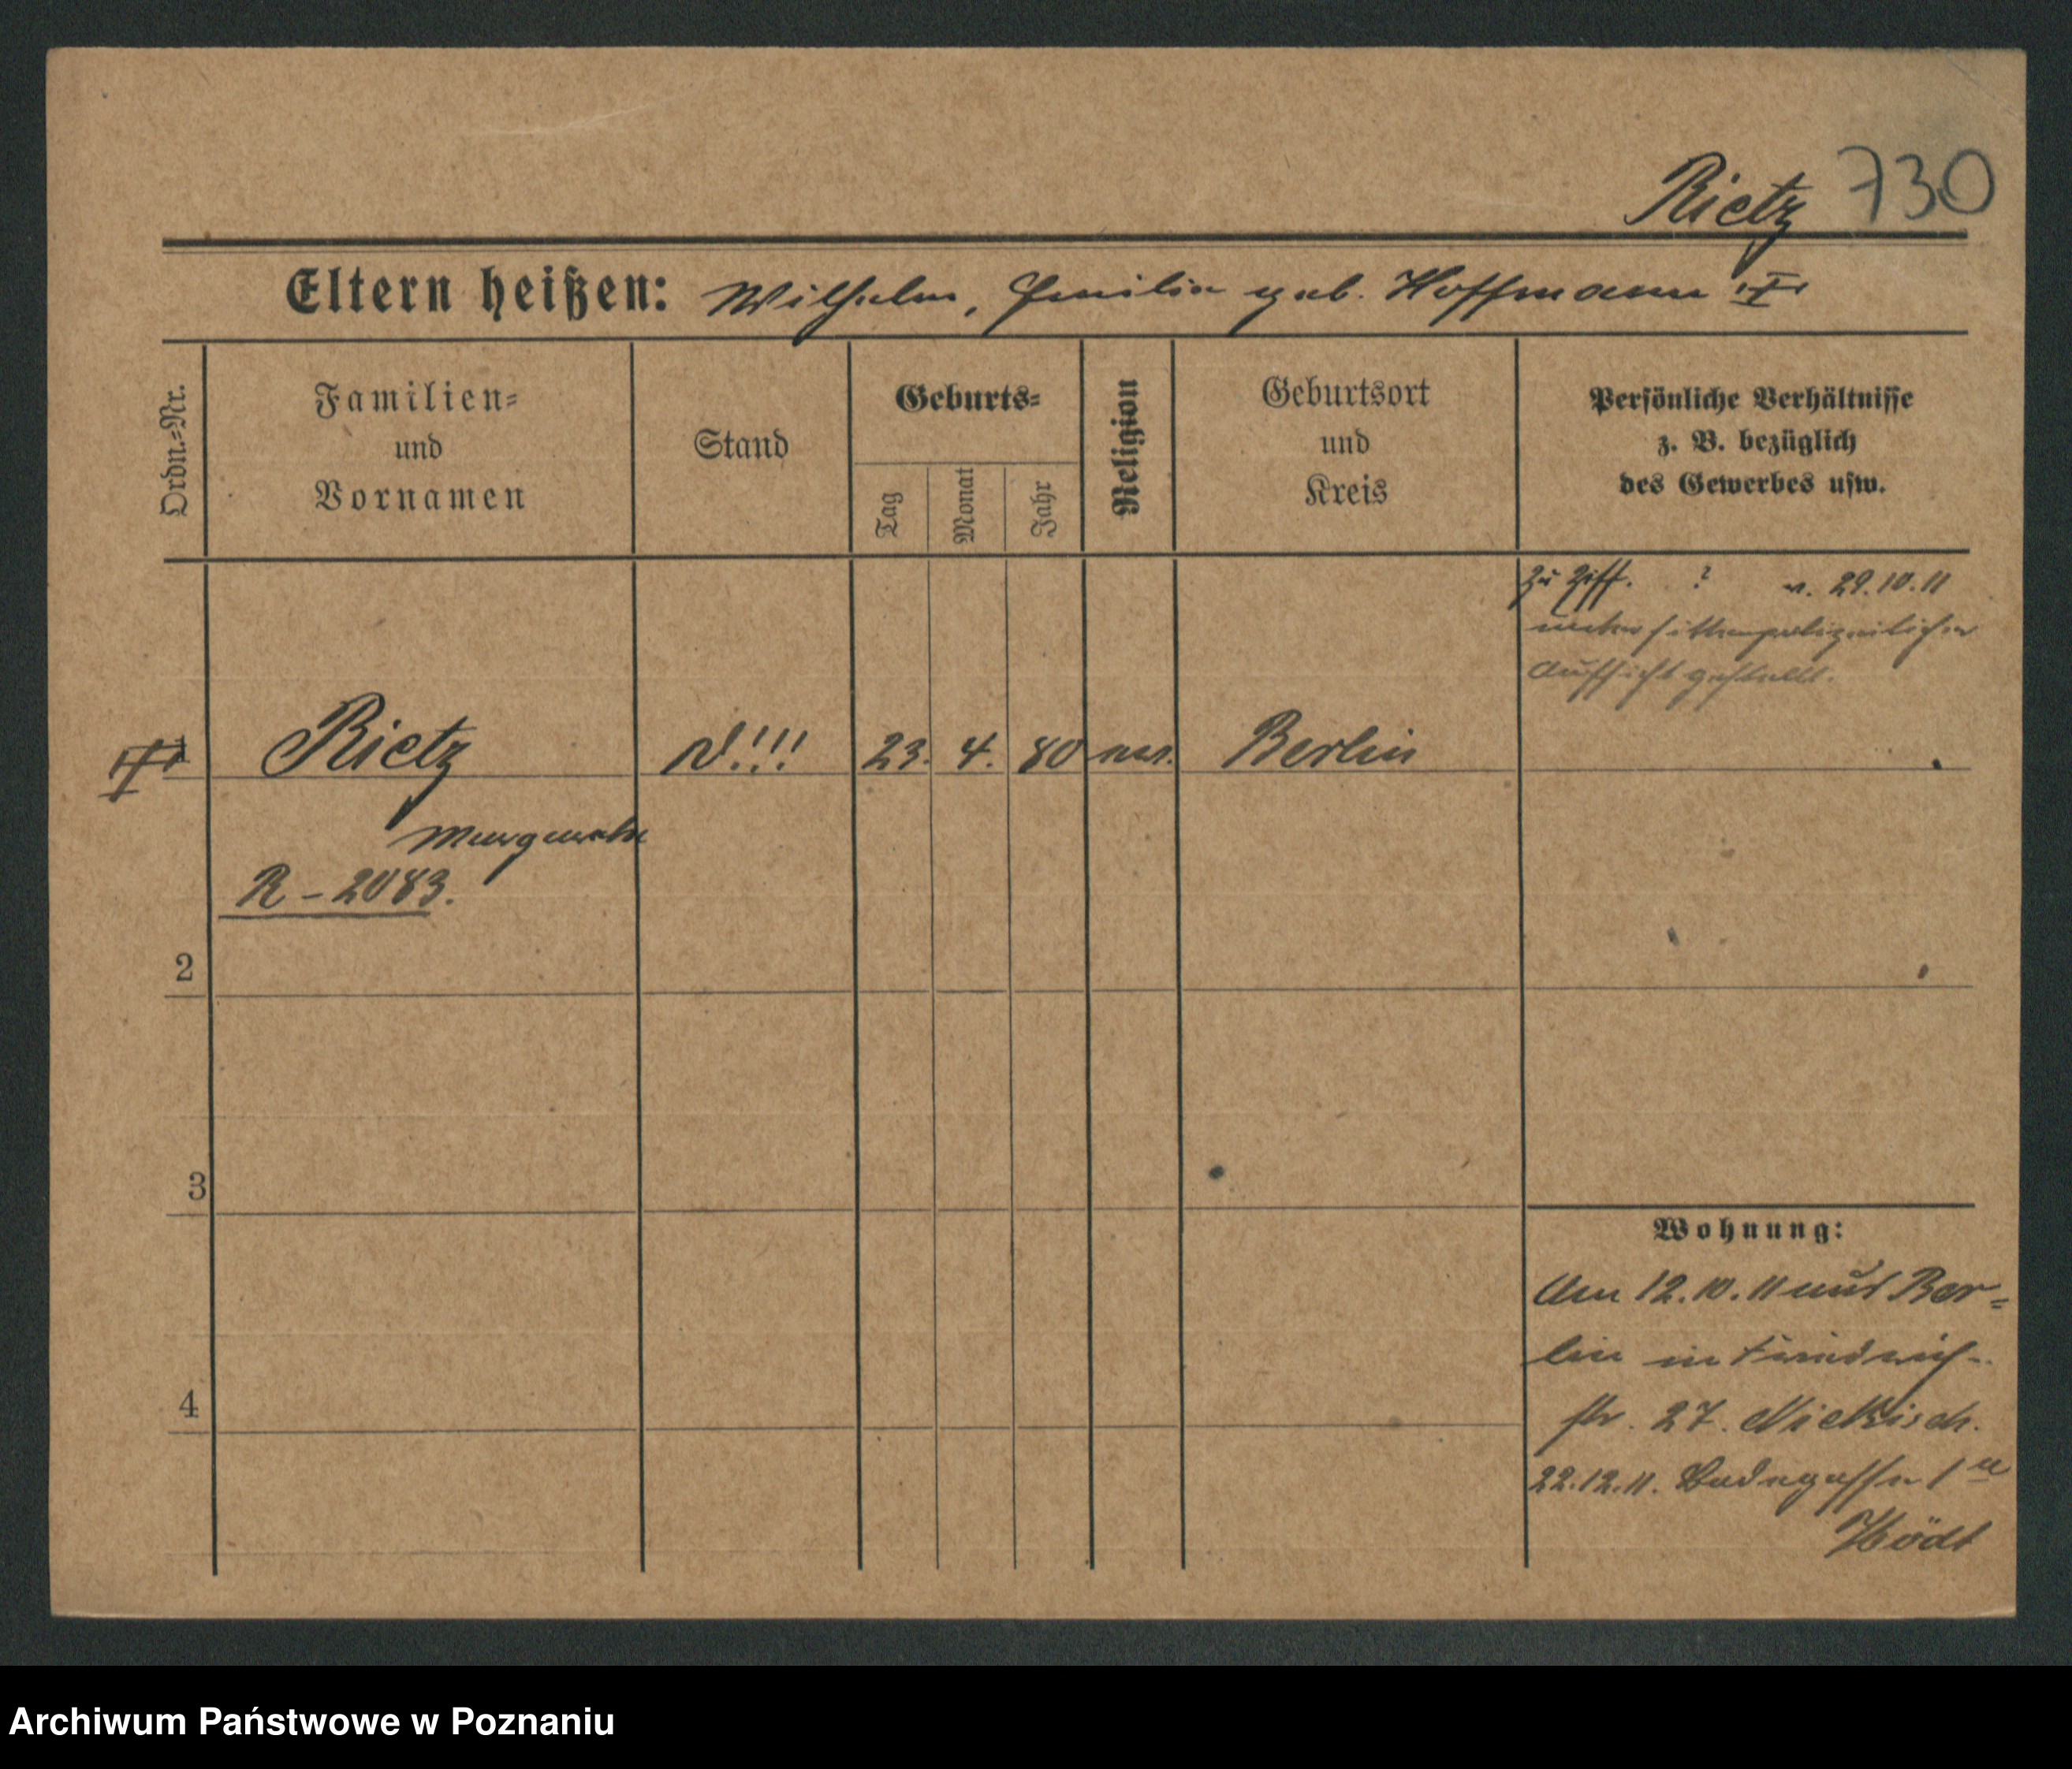 Rietz 730
Eltern heißen: Wilhelm, Emilie geb. Hoffmann
Ordn.-Nr.
Familien-
und
Vornamen
Stand
Geburts-
Tag
Monat
Jahr
Religion
Geburtsort
und
Kreis
Persönliche Verhältnisse
z. B. bezüglich
des Gewerbes usw.
Zu Ziff. ? v. 29.10.11
unter sittenpolizeilicher
Aufsicht gestellt.
1 Rietz !!! 23. 4. 80 Berlin
Margarethe
R - 2083.
2
3
4
Wohnung:
Am 12.10.11 aus Ber-
lin in Friedrich-
str. 27. Nickisch.
22.12.11. Badegasse 1
Hödt
Archiwum Państwowe w Poznaniu